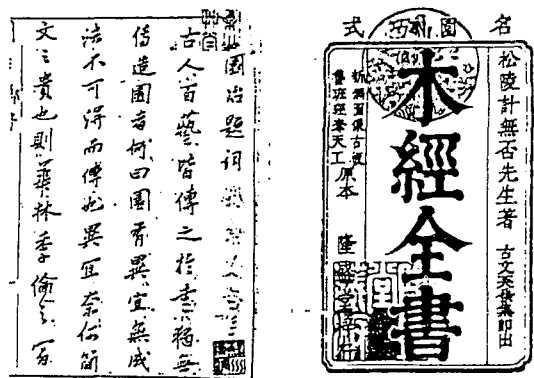 名園巧式
松陵計無否先生著
古文英傑集即出
木經全書
新鐫圖像古板
魯班經奪天工
原本
隆盛堂梓行
園冶題詞
古人百藝皆傳之於書獨無
傳造園者何曰園有異宜無成
法不可得而傳也異宜奈何簡
文之貴也則華林季倫之富